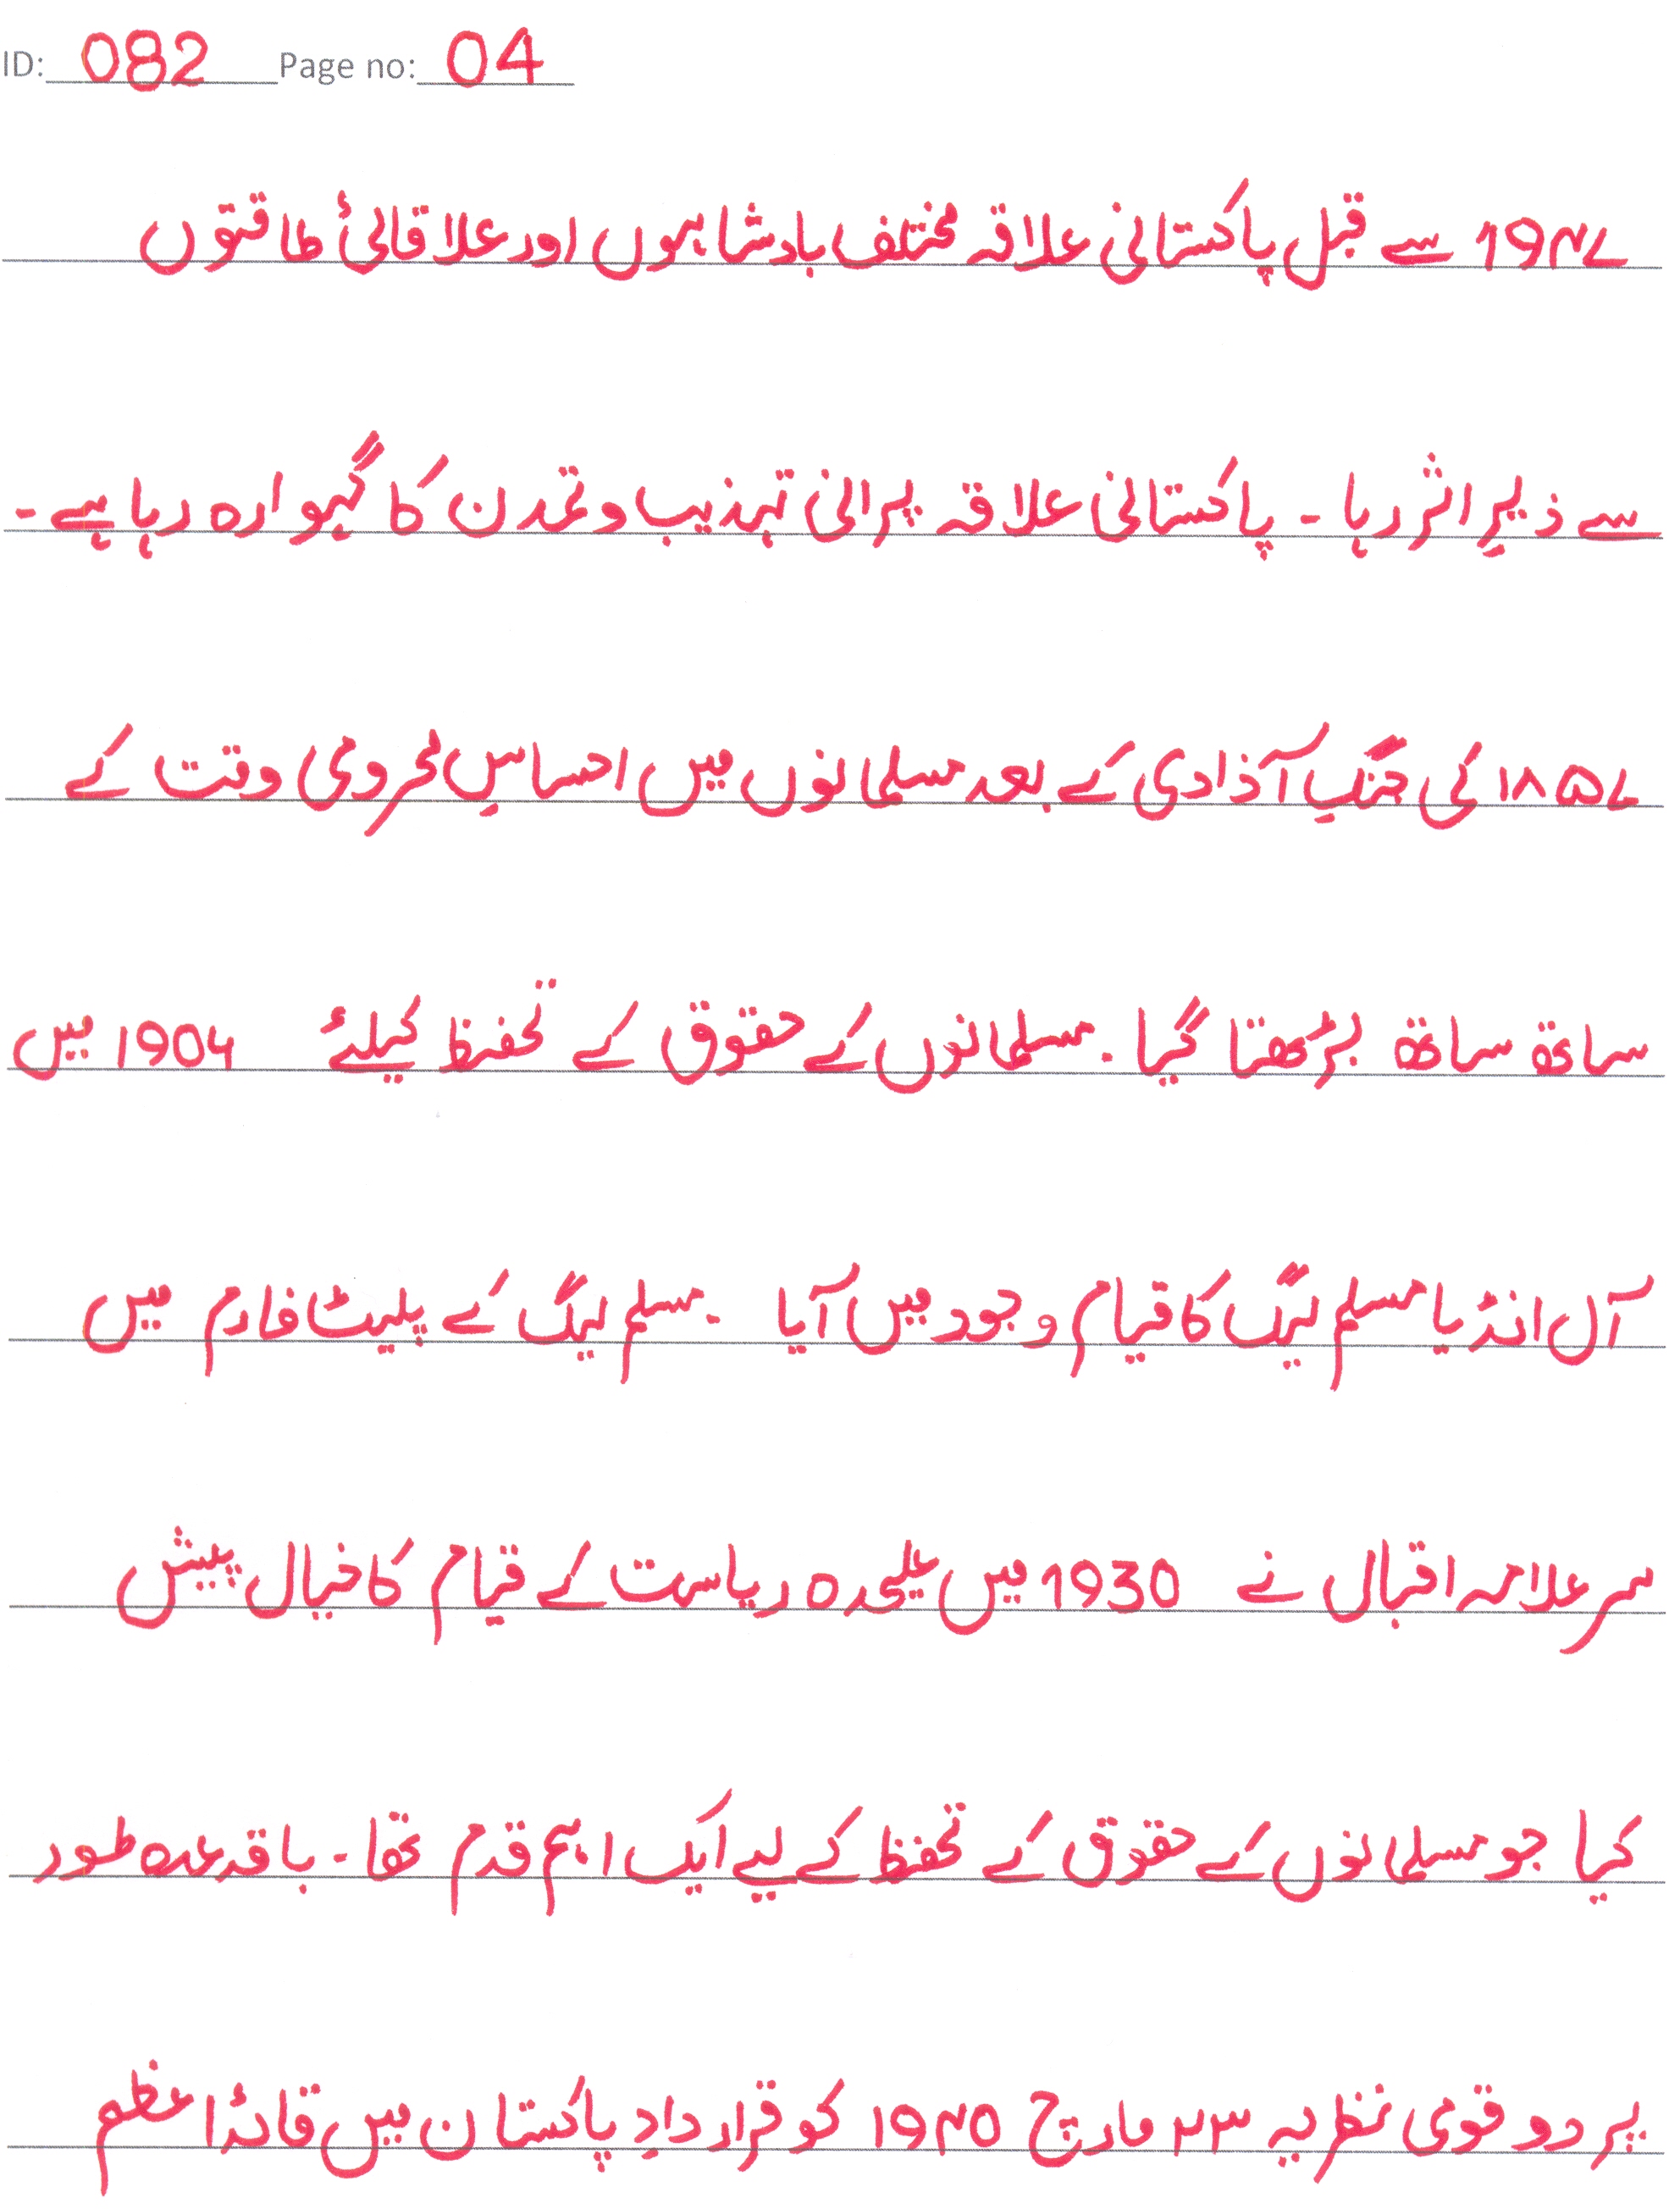 ID: 082 Page no: 04
۱۹۴۷ سے قبل پاکستانی علاقہ مختلف بادشاہوں اور علاقائی طاقتوں
سے ذیرِ اثر رہا ۔ پاکستانی علاقہ پرانی تہذیب و تمدن کا گہوارہ رہا ہے ۔
۱۸۵۷ کی جنگِ آذادی کے بعد مسلمانوں میں احساسِ محرومی وقت کے
ساتھ ساتھ بڑھتا گیا ۔ مسلمانوں کے حقوق کے تحفظ کیلئے ۱۹۰۶ میں
آل انڈیا مسلم لیگ کا قیام وجود میں آیا ۔ مسلم لیگ کے پلیٹ فارم میں
سر علامہ اقبال نے 1930 میں علیحدہ ریاست کے قیام کا خیال پیش
کیا جو مسلمانوں کے حقوق کے تحفظ کے لیے ایک اہم قدم تھا ۔ باقدعدہ طور
پر دو قومی نظریہ ۲۳ مارچ ۱۹۴۰ کو قراردادِ پاکستان میں قائداعظم